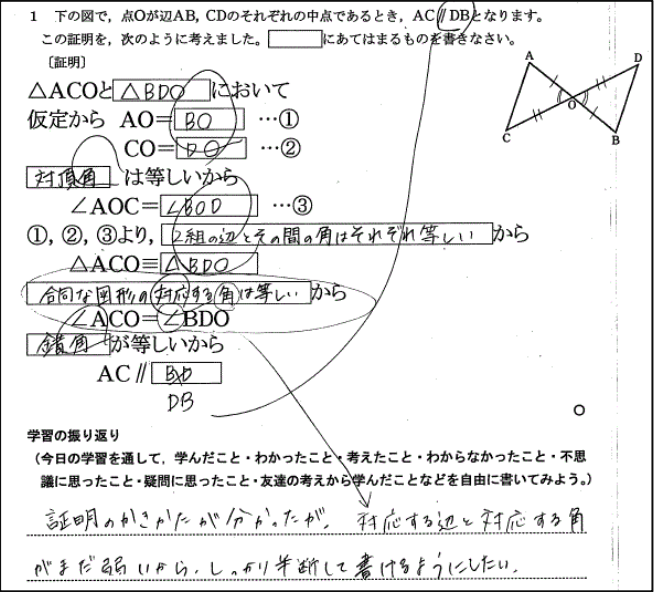 1 下の図で，点Oが辺AB，CDのそれぞれの中点であるとき，AC∥DBとなります。
この証明を，次のように考えました。□にあてはまるものを書きなさい。
〔証明〕
△ACOと△BDOにおいて
仮定から AO=BO …①
CO=DO …②
対頂角は等しいから
∠AOC=∠BOD …③
①，②，③より，2組の辺とその間の角はそれぞれ等しいから
△ACO≡△BDO
合同な図形の対応する角は等しいから
∠ACO=∠BDO
錯角が等しいから
AC∥BD
DB
A
D
O
C
B
学習の振り返り
（今日の学習を通して，学んだこと・わかったこと・考えたこと・わからなかったこと・不思
議に思ったこと・疑問に思ったこと・友達の考えから学んだことなどを自由に書いてみよう。）
証明のかきかたが分かったが、対応する辺と対応する角
がまだ弱いから、しっかり半断して書けるようにしたい。